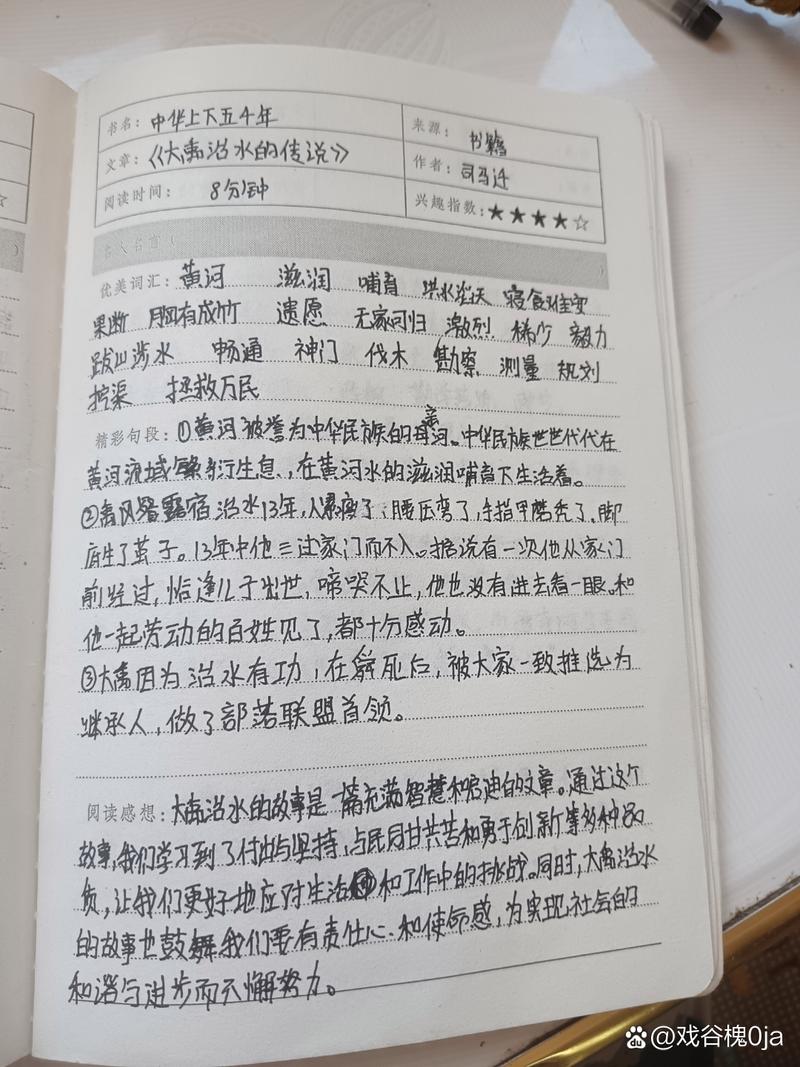 书名：中华上下五千年
来源：书籍
文章：《大禹治水的传说》
作者：司马迁
阅读时间：8分钟
兴趣指数：★★★★☆
优美词汇：黄河 滋润 哺育 洪水滔天 寝食难安
果断 胸有成竹 遗愿 无家可归 激烈 稀少 毅力
跋山涉水 畅通 神门 伐木 勘察 测量 规划
挖渠 拯救万民
精彩句段：①黄河被誉为中华民族的母亲河。中华民族世世代代在
黄河流域繁衍生息，在黄河水的滋润哺育下生活着。
②禹风餐露宿治水13年，人累瘦了，腰压弯了，手指甲磨秃了，脚
底生了茧子。13年中他三过家门而不入。据说有一次他从家门
前经过，恰逢儿子出世，啼哭不止，他也没有进去看一眼。和
他一起劳动的百姓见了，都十分感动。
③大禹因为治水有功，在舜死后，被大家一致推选为
继承人，做了部落联盟首领。
阅读感想：大禹治水的故事是一篇充满智慧和启迪的文章。通过这个
故事，我们学习到了付出与坚持，与民同甘共苦和勇于创新等多种品
质，让我们更好地应对生活和工作中的挑战。同时，大禹治水
的故事也鼓舞我们要有责任心和使命感，为实现社会的
和谐与进步而不懈努力。
@戏谷槐0ja